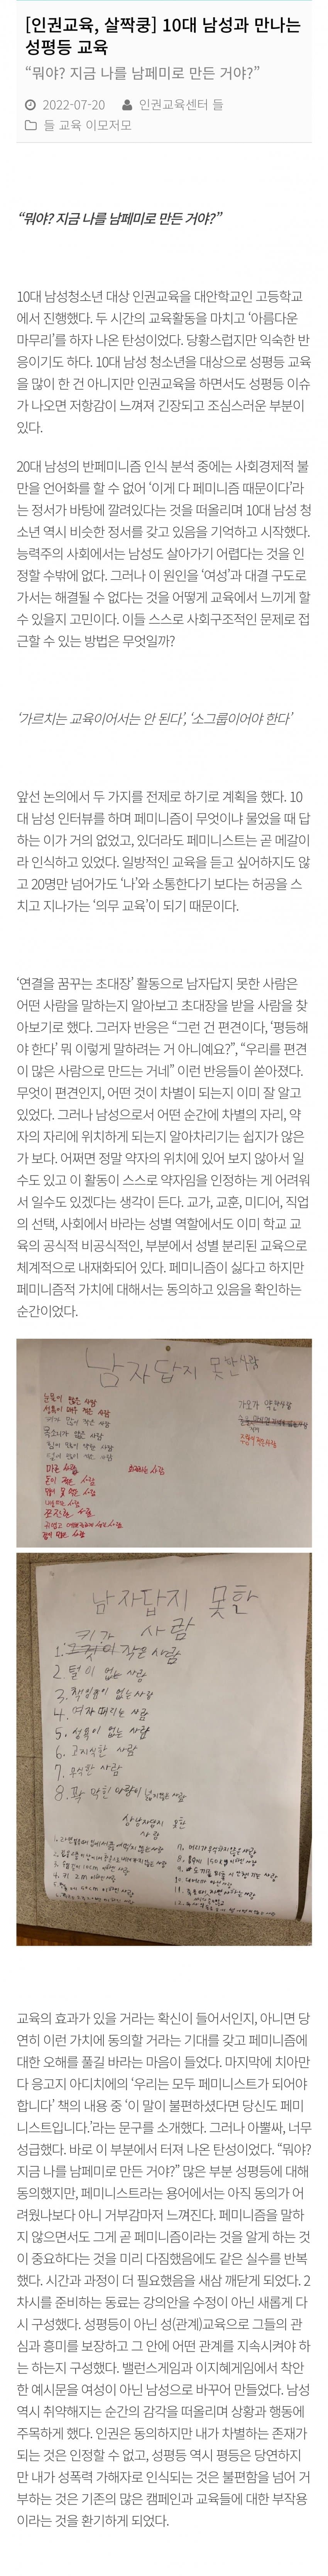 [인권교육, 살짝쿵] 10대 남성과 만나는
성평등 교육
“뭐야? 지금 나를 남페미로 만든 거야?”
2022-07-20 인권교육센터 들
들 교육 이모저모
“뭐야? 지금 나를 남페미로 만든 거야?”
10대 남성청소년 대상 인권교육을 대안학교인 고등학교
에서 진행했다. 두 시간의 교육활동을 마치고 ‘아름다운
마무리’를 하자 나온 탄성이었다. 당황스럽지만 익숙한 반
응이기도 하다. 10대 남성 청소년을 대상으로 성평등 교육
을 많이 한 건 아니지만 인권교육을 하면서도 성평등 이슈
가 나오면 저항감이 느껴져 긴장되고 조심스러운 부분이
있다.
20대 남성의 반페미니즘 인식 분석 중에는 사회경제적 불
만을 언어화를 할 수 없어 ‘이게 다 페미니즘 때문이다’라
는 정서가 바탕에 깔려있다는 것을 떠올리며 10대 남성 청
소년 역시 비슷한 정서를 갖고 있음을 기억하고 시작했다.
능력주의 사회에서는 남성도 살아가기 어렵다는 것을 인
정할 수밖에 없다. 그러나 이 원인을 ‘여성’과 대결 구도로
가서는 해결될 수 없다는 것을 어떻게 교육에서 느끼게 할
수 있을지 고민이다. 이들 스스로 사회구조적인 문제로 접
근할 수 있는 방법은 무엇일까?
‘가르치는 교육이어서는 안 된다’, ‘소그룹이어야 한다’
앞선 논의에서 두 가지를 전제로 하기로 계획을 했다. 10
대 남성 인터뷰를 하며 페미니즘이 무엇이냐 물었을 때 답
하는 이가 거의 없었고, 있더라도 페미니스트는 곧 메갈이
라 인식하고 있었다. 일방적인 교육을 듣고 싶어하지도 않
고 20명만 넘어가도 ‘나’와 소통한다기 보다는 허공을 스
치고 지나가는 ‘의무 교육’이 되기 때문이다.
‘연결을 꿈꾸는 초대장’ 활동으로 남자답지 못한 사람은
어떤 사람을 말하는지 알아보고 초대장을 받을 사람을 찾
아보기로 했다. 그러자 반응은 “그런 건 편견이다, ‘평등해
야 한다’ 뭐 이렇게 말하려는 거 아니예요?”, “우리를 편견
이 많은 사람으로 만드는 거네” 이런 반응들이 쏟아졌다.
무엇이 편견인지, 어떤 것이 차별이 되는지 이미 잘 알고
있었다. 그러나 남성으로서 어떤 순간에 차별의 자리, 약
자의 자리에 위치하게 되는지 알아차리기는 쉽지가 않은
가 보다. 어쩌면 정말 약자의 위치에 있어 보지 않아서 일
수도 있고 이 활동이 스스로 약자임을 인정하는 게 어려워
서 일수도 있겠다는 생각이 든다. 교가, 교훈, 미디어, 직업
의 선택, 사회에서 바라는 성별 역할에서도 이미 학교 교
육의 공식적 비공식적인, 부분에서 성별 분리된 교육으로
체계적으로 내재화되어 있다. 페미니즘이 싫다고 하지만
페미니즘적 가치에 대해서는 동의하고 있음을 확인하는
순간이었다.
남자답지 못한 사람
눈물이 많은 사람
마른 사람
남자답지 못한
사람
1. 키가 작은 사람
2. 털이 없는 사람
3. 책임감이 없는 사람
4. 여자 때리는 사람
5. 성욕이 없는 사람
6. 고지식한 사람
7. 무식한 사람
8. 꽉 막힌 마음이 넓지 않은 사람
상남자답지 못한
사람
교육의 효과가 있을 거라는 확신이 들어서인지, 아니면 당
연히 이런 가치에 동의할 거라는 기대를 갖고 페미니즘에
대한 오해를 풀길 바라는 마음이 들었다. 마지막에 치아만
다 응고지 아디치에의 ‘우리는 모두 페미니스트가 되어야
합니다’ 책의 내용 중 ‘이 말이 불편하셨다면 당신도 페미
니스트입니다.’라는 문구를 소개했다. 그러나 아뿔싸, 너무
성급했다. 바로 이 부분에서 터져 나온 탄성이었다. “뭐야?
지금 나를 남페미로 만든 거야?” 많은 부분 성평등에 대해
동의했지만, 페미니스트라는 용어에서는 아직 동의가 어
려웠나보다 아니 거부감마저 느껴진다. 페미니즘을 말하
지 않으면서도 그게 곧 페미니즘이라는 것을 알게 하는 것
이 중요하다는 것을 미리 다짐했음에도 같은 실수를 반복
했다. 시간과 과정이 더 필요했음을 새삼 깨닫게 되었다. 2
차시를 준비하는 동료는 강의안을 수정이 아닌 새롭게 다
시 구성했다. 성평등이 아닌 성(관계)교육으로 그들의 관
심과 흥미를 보장하고 그 안에 어떤 관계를 지속시켜야 하
는 하는지 구성했다. 밸런스게임과 이지혜게임에서 착안
한 예시문을 여성이 아닌 남성으로 바꾸어 만들었다. 남성
역시 취약해지는 순간의 감각을 떠올리며 상황과 행동에
주목하게 했다. 인권은 동의하지만 내가 차별하는 존재가
되는 것은 인정할 수 없고, 성평등 역시 평등은 당연하지
만 내가 성폭력 가해자로 인식되는 것은 불편함을 넘어 거
부하는 것은 기존의 많은 캠페인과 교육들에 대한 부작용
이라는 것을 환기하게 되었다.